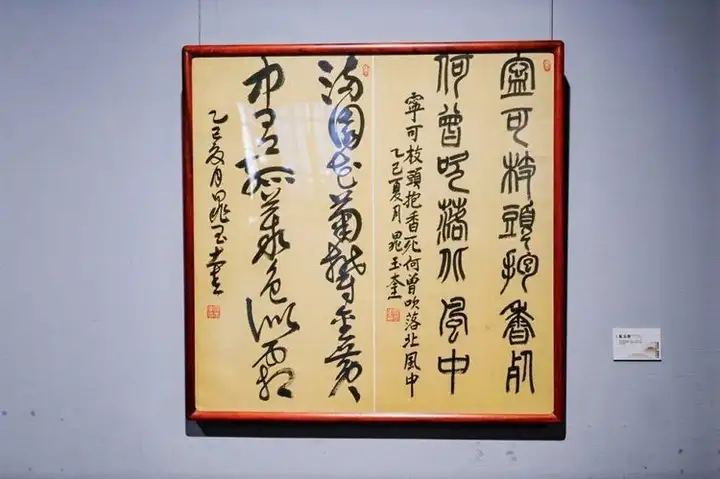 寧可枝頭抱香死
何曾吹落北風中
寧可枝頭抱香死何曾吹落北風中
乙巳夏月 晁玉奎
滿園花菊鬱金黃
中有孤叢色似霜
乙巳夏月晁玉奎